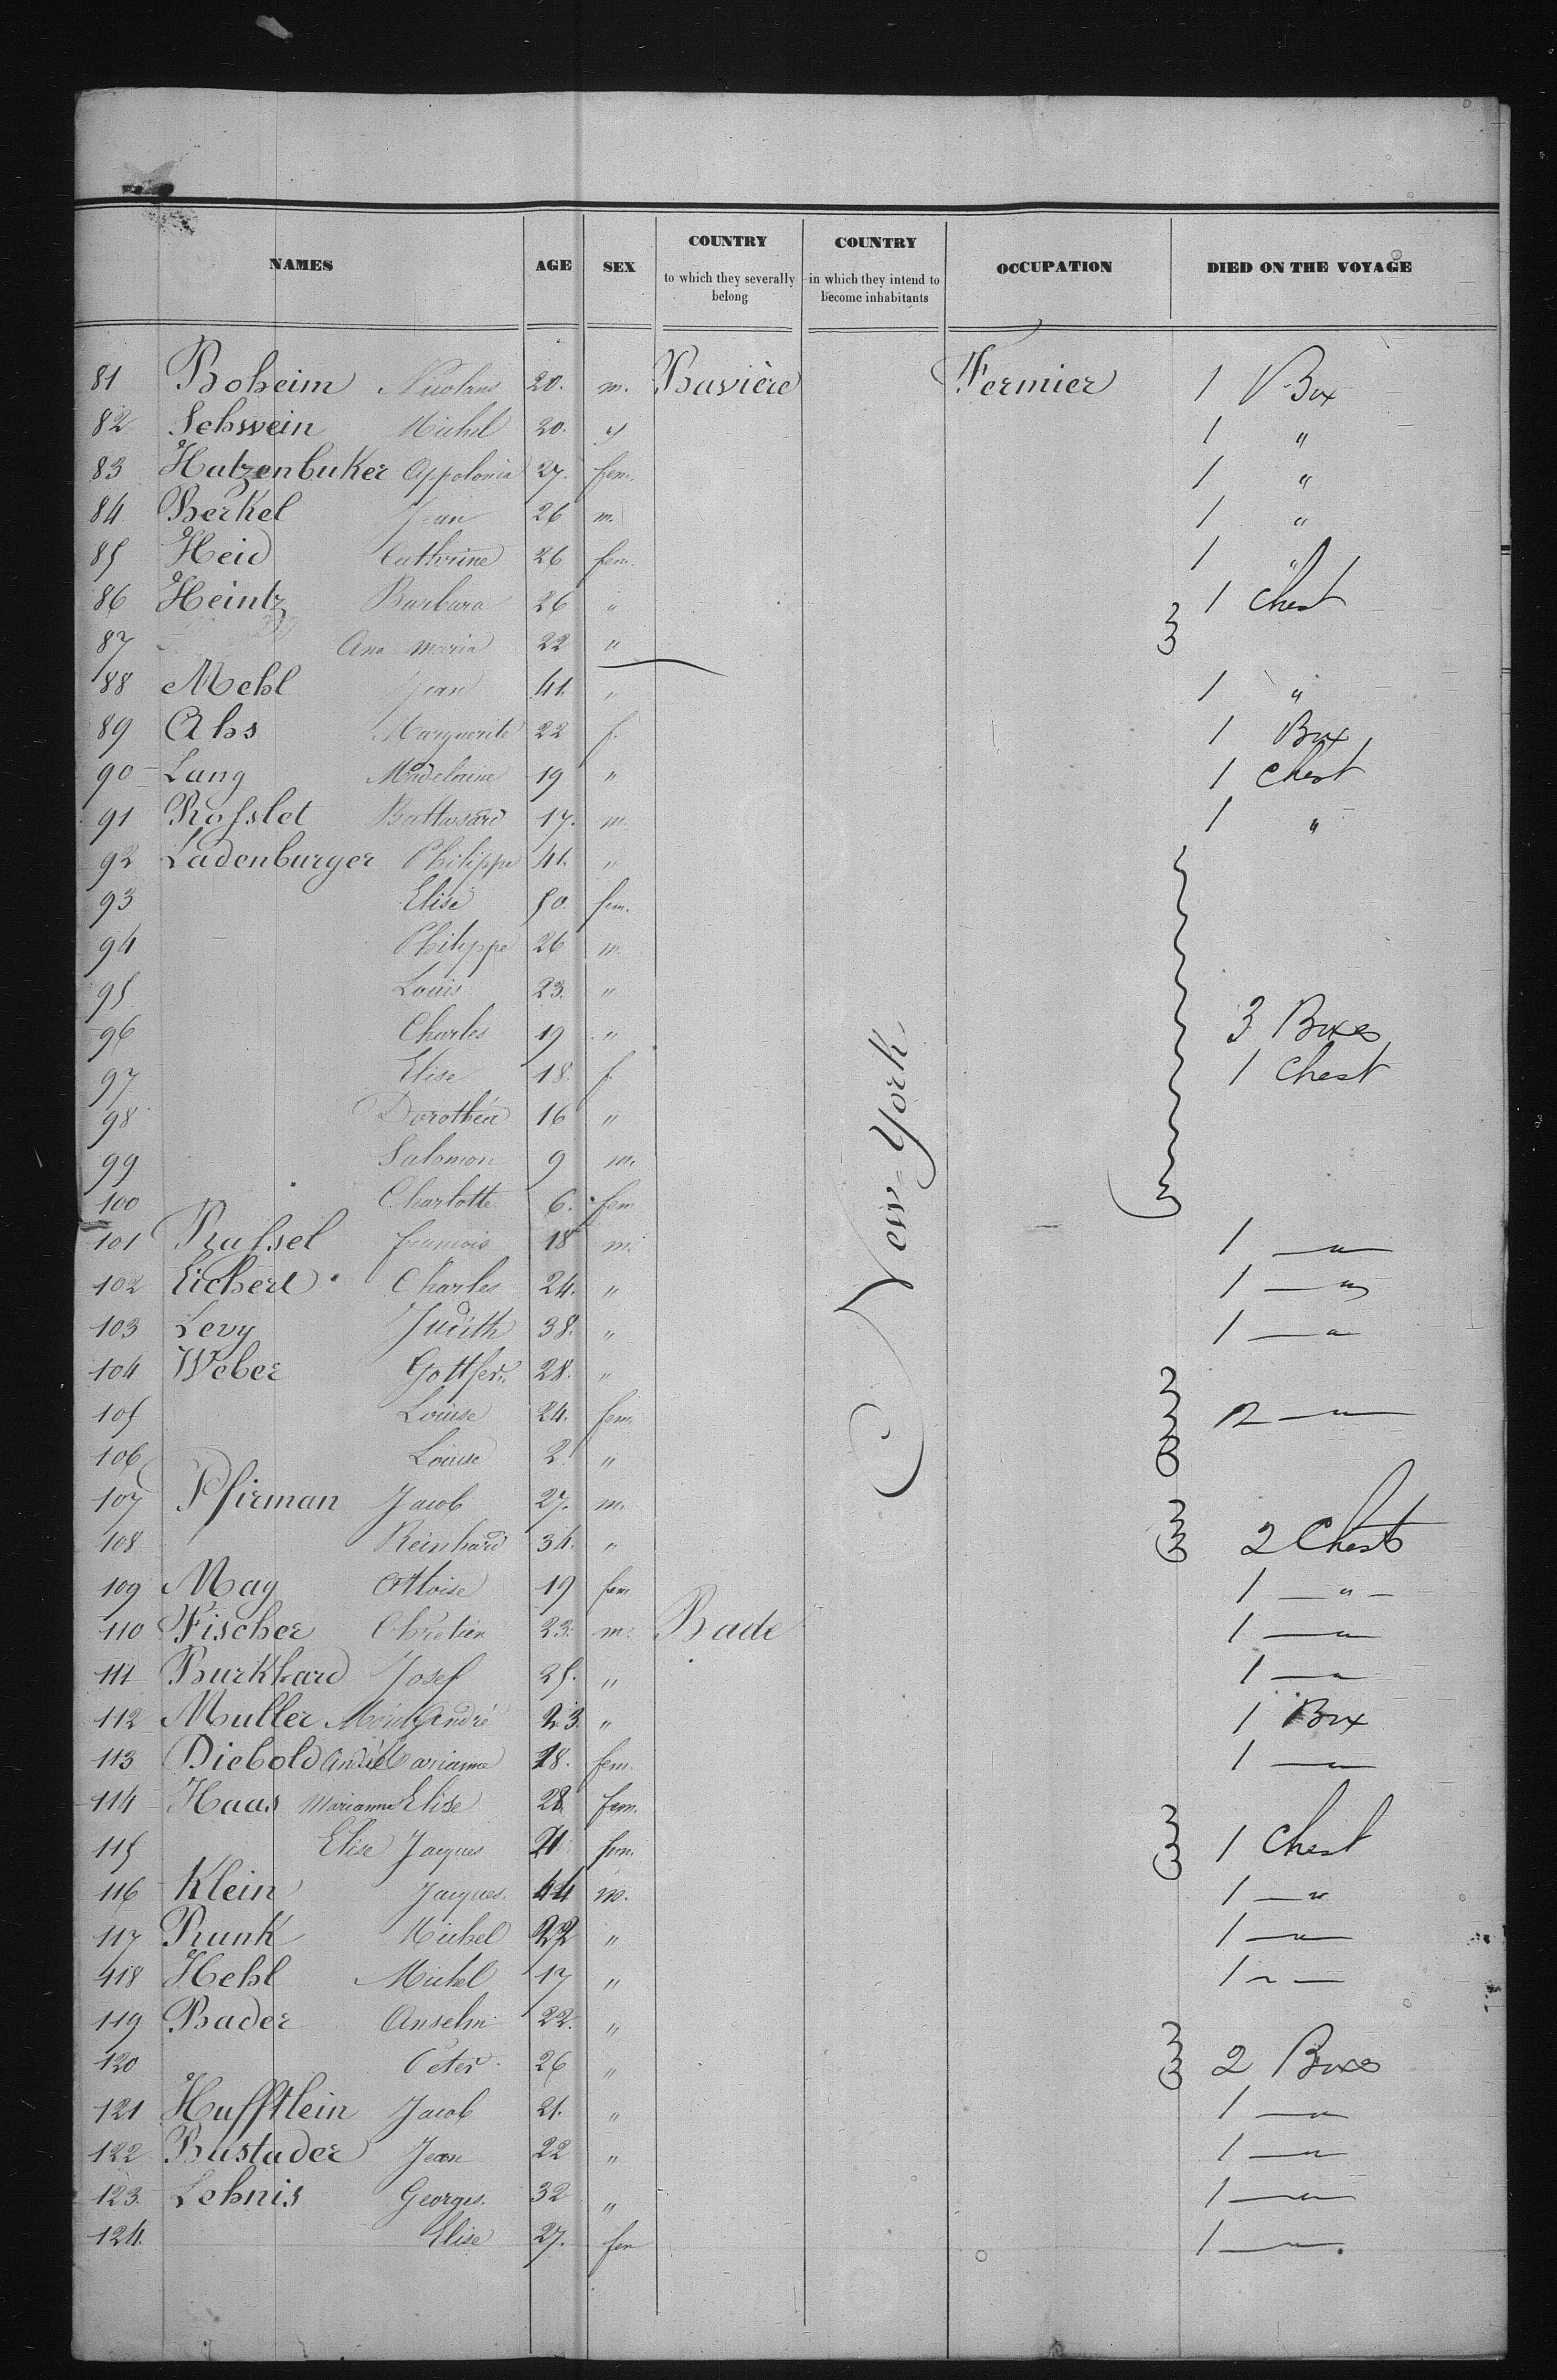 NAMES AGE SEX COUNTRY to which they severally belong COUNTRY in which they intend to become inhabitants OCCUPATION DIED ON THE VOYAGE
81 Boheim Nicolaus 20. m. Bavière Fermier 1 Box
82 Schwein Michel 20. " 1 "
83 Hatzenbuker Appolonia 27. fem. 1 "
84 Berkel Jean 26 m. 1 "
85 Heid Cathrine 26 fem. 1 "
86 Heintz Barbara 26 " 1 Chest
87 Ana Maria 22 "
88 Mehl Jean 41. " 1 "
89 Ahs Marguerite 22 f. 1 Box
90 Lang Madelaine 19 " 1 Chest
91 Rofslet 17. m. 1 "
92 Ladenburger Philippe 41. "
93 Elise 50. fem.
94 Philippe 26 m.
95 Louis 23. "
96 Charles 19 " 3 Boxes
97 Elise 18. f. 1 Chest
98 Dorothéa 16 "
99 Salomon 9 m.
100 Charlotte 6. fem
New-York
101 Rafsel francois 18 m. 1 — " —
102 Eichert Charles 24. " 1 — "
103 Levy Judith 38. " 1 — "
104 Weber Gottfer. 28. "
105 Louise 24. fem. 2 — " —
106 Louise 2. "
107 Pfirman Jacob 27. m.
108 Reinhard 34. " 2 Chests
109 May 19 fem 1 — " —
110 Fischer Chretien 23. m. Bade 1 — " —
111 Burkhard Josef 25. " 1 — " —
112 Muller Moritz André 23. " 1 Box
113 Diebold André Marianna 18. fem. 1 — " —
114 Haas Marianna Elise 28. fem.
115 Elise Jacques 21 fem. 1 Chest
116 Klein Jacques. 44 m. 1 — "
117 Runk Michel 22 " 1 — " —
118 Hehl Michel 17 " 1 " —
119 Bader Anselm 22. "
120 Peter. 26 " 2 Boxes
121 Hufftlein Jacob 21. " 1 — " —
122 Bustader Jean 22 " 1 — " —
123. Lehnis Georges. 32 " 1 — " —
124. Elise 27. fem 1 — " —.